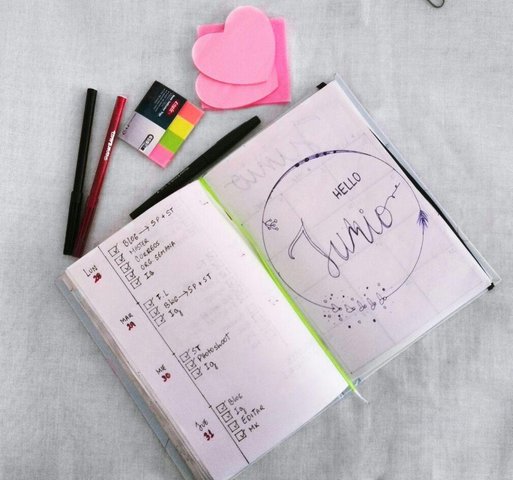 LUN
28
BLOG → SP + ST
MASTER
CORREOS
ORG SEMANA
IG
MAR
29
F.L
Blog → SP + ST
Ig
MIE
30
ST
PHOTOSHOOT
Ig
JUE
31
Blog
Ig
EDITAR
MK
HELLO
Junio